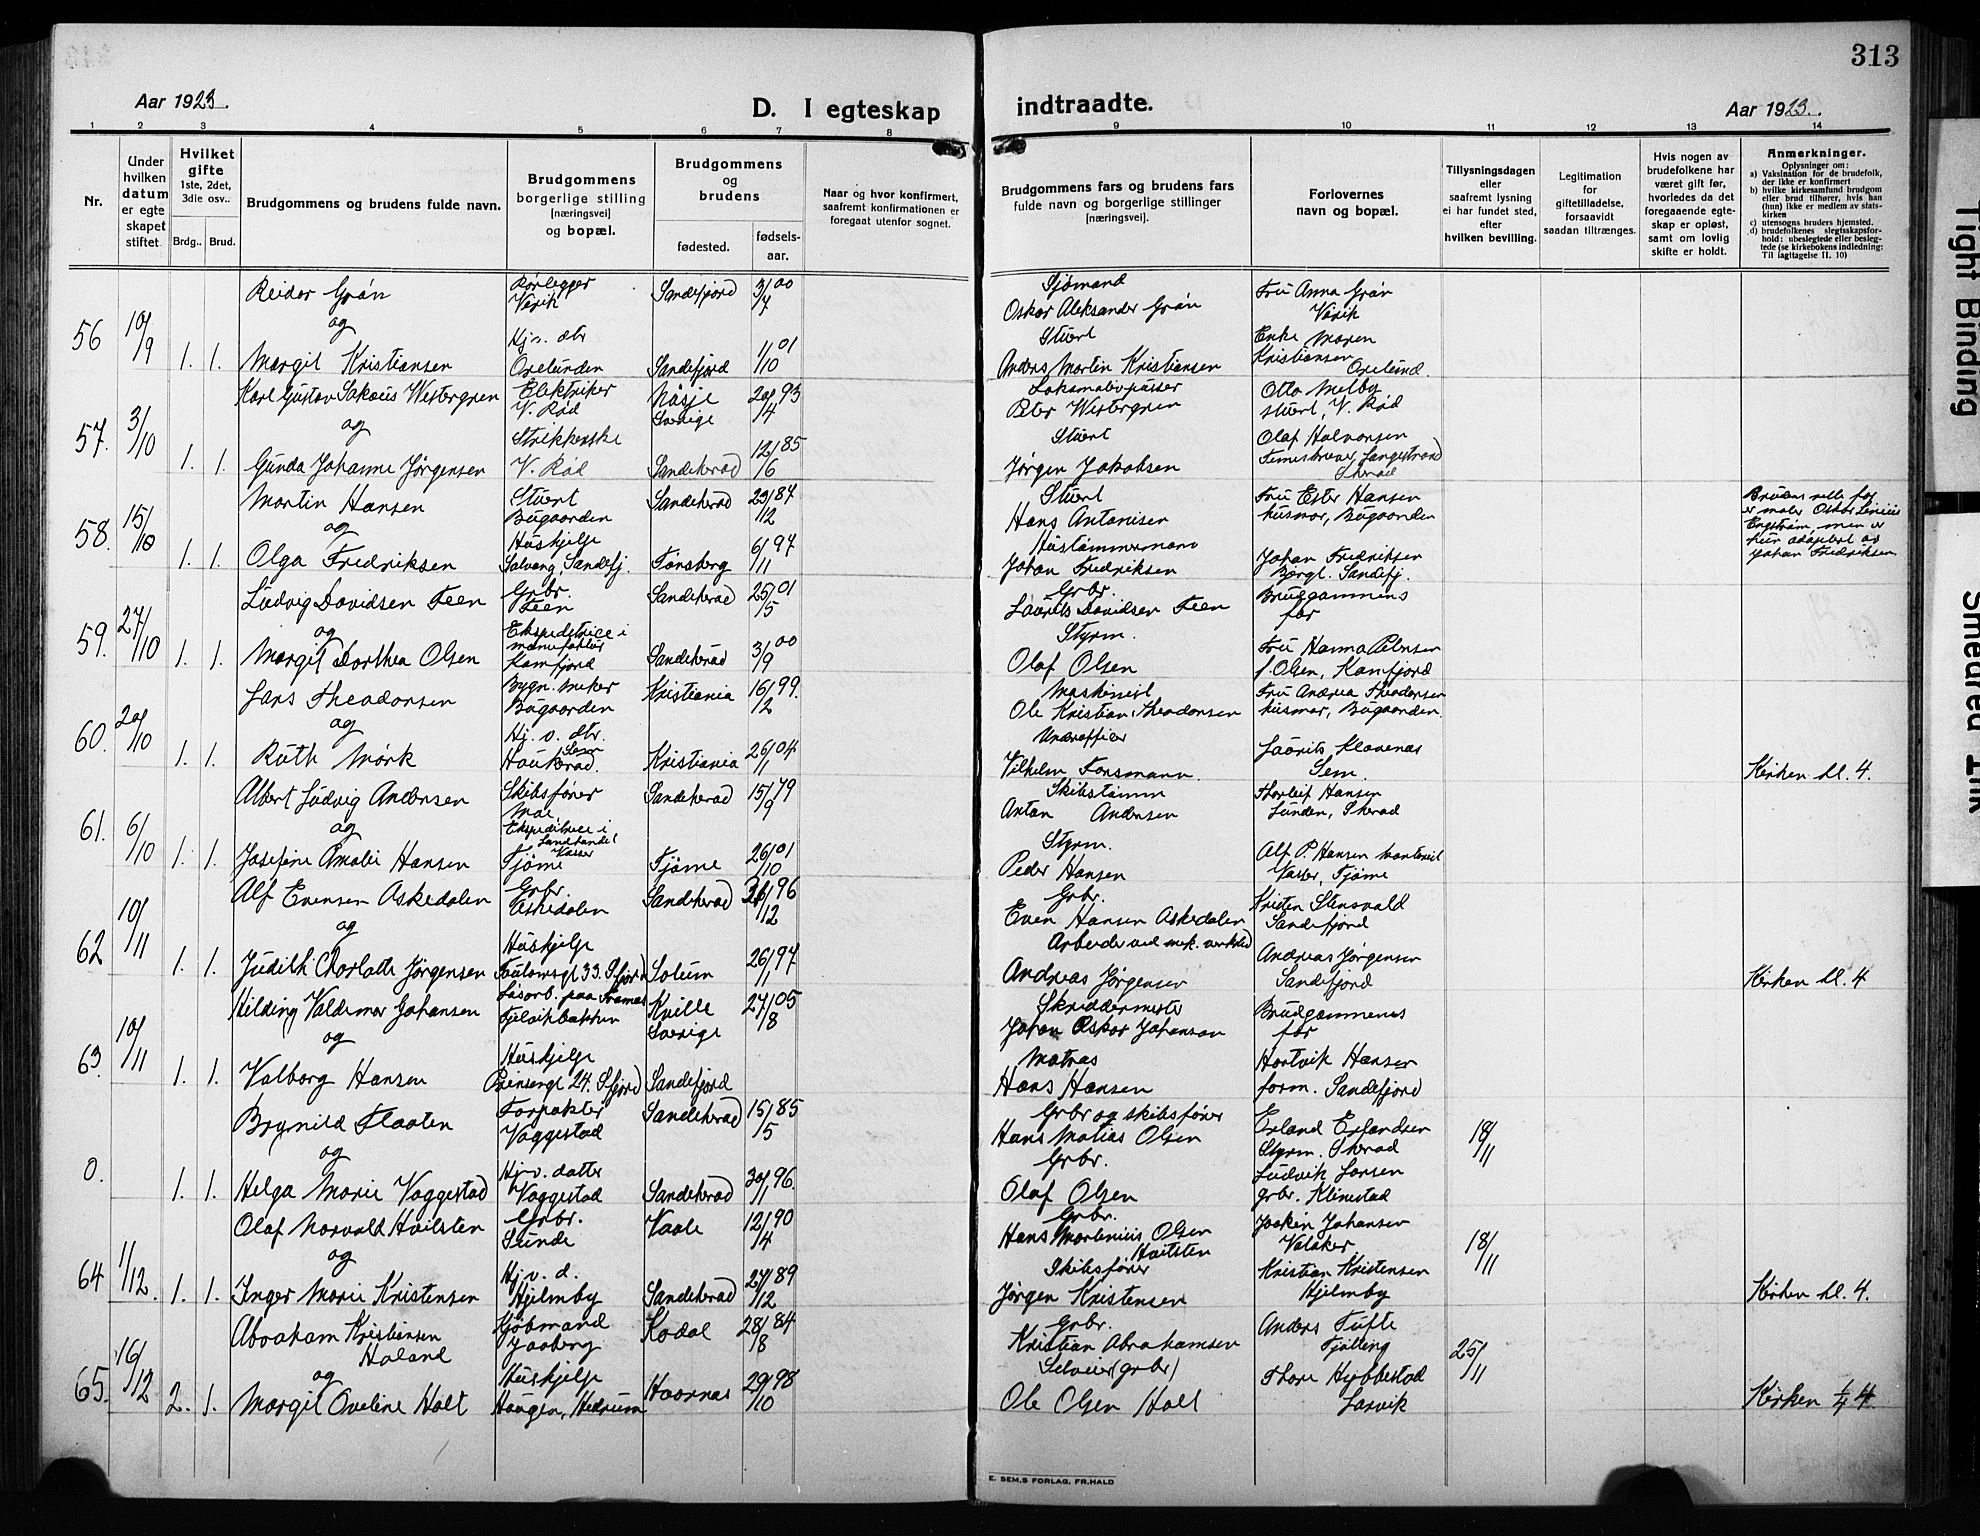 313
Aar 1923.
D. I egteskap
indtraadte.
Aar 1923.
1 2 3 4 5 6 7 8 9 10 11 12 13 14
Nr.
Under hvilken datum er egteskapet stiftet
Hvilket gifte 1ste, 2det, 3die osv..
Brdg.. Brud.
Brudgommens og brudens fulde navn.
Brudgommens borgerlige stilling [næringsvei] og bopæl.
Brudgommens og brudens
fødested.
fødselsaar.
Naar og hvor konfirmert, saafremt konfirmationen er foregaat utenfor sognet.
Brudgommens fars og brudens fars fulde navn og borgerlige stillinger [næringsvei].
Forlovernes navn og bopæl.
Tillysningsdagen eller saafremt lysning ei har fundet sted, efter hvilken bevilling.
Legitimation for giftetilladelse, forsaavidt saadan tiltrænges.
Hvis nogen av brudefolkene har været gift før, hvorledes da det foregaaende egteskap er opløst, samt om lovlig skifte er holdt.
Anmerkninger.
Oplysninger om:
a) Vaksination for de brudefolk, der ikke er konfirmert
b) hvilke kirkesamfund brudgom eller brud tilhører, hvis han (hun) ikke er medlem av statskirken
c) utensogns bruders hjemsted.
d) brudefolkenes slegtsskapsforhold: ubeslegtede eller beslegtede (se kirkebokens indledning: Til iagttagelse II. 10)
56 10/9 1. 1.
Reidar Grøn
og
Margit Kristiansen
Rørlegger
Virik
Hjv. dtr
Orelunden
Sandefjord 3/7 00
Sandefjord 1/10 01
Sjømand
Oskar Aleksander Grøn
Stuert
Anders Martin Kristiansen
Fru Anna Grøn
Virik
Enke Maren Kristiansen
Orelund.
57. 3/10 1. 1.
Karl Gustav Sakæus Westergren
og
Gunda Johanne Jørgensen
Elektriker
V. Rød
Strikkerske
V. Rød
Nåsje
Sverige 20/4 93
Sandeherad 12/6 85
Lokomotivpusser
Peter Westergren
Stuert
Jørgen Jakobsen
Otto Melby
stuert, V. Rød
Olaf Halvorsen
Langestrand
58. 15/10 1. 1.
Martin Hansen
og
Olga Fredriksen
Stuert
Bugaarden
Hushjelp
Solvang, Sandefj.
Sandeherad 23/12 87
Tønsberg 6/11 97
Stuert
Hans Antonisen
Hustømmermann
Johan Fredriksen
Fru Ester Hansen
husmor, Bugaarden
Johan Fredriksen
Bjergt. Sandefj.
Brudens rette far
er maler Oskar Linius
Engstrøm, men er
hun adoptert av
Johan Fredriksen
59. 27/10 1. 1.
Ludvig Davidsen Feen
og
Margit Dorthea Olsen
Grbr.
Feen
Ekspeditrice i
manufaktur
Kamfjord
Sandeherad 25/5 01
Sandeherad 3/9 00
Grbr.
Laurits Davidsen Feen
Styrm.
Olaf Olsen
Brudgommens
far
Fru Hanna Petersen
f. Olsen, Kamfjord
60. 20/10 1. 1.
Lars Theodorsen
og
Ruth Mørk
Bygn. sneker
Bugaarden
Hj. v. dtr.
Haukerød. Sem
Kristiania 16/2 99.
Kristiania 26/11 04
Maskinist
Ole Kristian Theodorsen
Underoffiser
Vilhelm Forsmann.
Fru Andrea Theodorsen
husmor, Bugaarden.
Laurits Klavenæs
Sem.
Kirken kl. 4.
61. 6/10 1. 1.
Albert Ludvig Andersen
og
Josefine Amalie Hansen
Skibsfører
Møe,
Ekspeditrice i
Landhandel
Vasser
Tjøme
Sandeherad 15/9 79
Tjøme 26/10 01
Skibstømm
Anton Andersen
Styrm.
Peder Hansen
Thorleif Hansen
Lunden, Sherad
Alf P. Hansen
Vasser, Tjøme
62 10/11 1. 1.
Alf Evensen Askedalen
og
Judith Charlotte Jørgensen
Grbr.
Askedalen
Hushjelp
33. Sfjord
Sandeherad 26/12 96
Solum 26/1 97
Grbr.
Even Hansen Askedalen
Arbeider ved mek. verksted
Andreas Jørgensen
Kristen Stensvald
Sandefjord
Andreas Jørgensen
Sandefjord
Kirken kl. 4
63. 10/11 1. 1.
Hilding Valdemar Johansen
og
Valborg Hansen
Løsarb. paa Framnæs
Fjelvikbakken
Hushjelp
Prinsensgt 24. Sfjord
Kville
Sverige 27/8 05
Sandefjord
Skreddermester
Johan Oskar Johanson
Matros
Hans Hansen
Brudgommens
far
Hartvik Hansen
form. Sandefjord
0. 1. 1.
Brynild Flaaten
og
Helga Marie Vaggestad
Forpakter
Vaggestad
Hjv. datter
Vaggestad
Sandeherad 15/5 85
Sandeherad 30/1 96.
Grbr og skibsfører
Hans Matias Olsen
Grbr.
Olaf Olsen
Erland Erlandsen
Styrm. Sherad
Ludvik Larsen
grbr. Klinestad
18/11
64 1/12. 1. 1.
Olaf Norvald Hvitsten
og
Inger Marie Kristensen
Grbr.
Sunde
Hj. v. d.
Hjelmby
Vaale 12/4 90
Sandeherad 27/12 89
Grbr.
Hans Martinius Olsen
Hvitsten
Skibsfører
Jørgen Kristensen
Joakim Johansen
Valaker
Kristian Kristensen
Hjelmby
18/11
Kirken kl. 4.
65. 16/12 2. 1.
Abraham Kristiansen
Haland
og
Margit Oveline Holt
Kjøbmand
Gaaberg
Hushjelp
Haugen, Hedrum
Kodal 28/8 84
Hvarnes 29/10 98
Grbr.
Kristian Abrahamsen
Selveier (grbr)
Ole Olsen Holt
Anders Tufte
Tjølling
Thore Hybbestad
Larvik
25/11
Kirken 4
E. SEM,S FORLAG, FR.HALD
Tight Binding
Smeared Ink